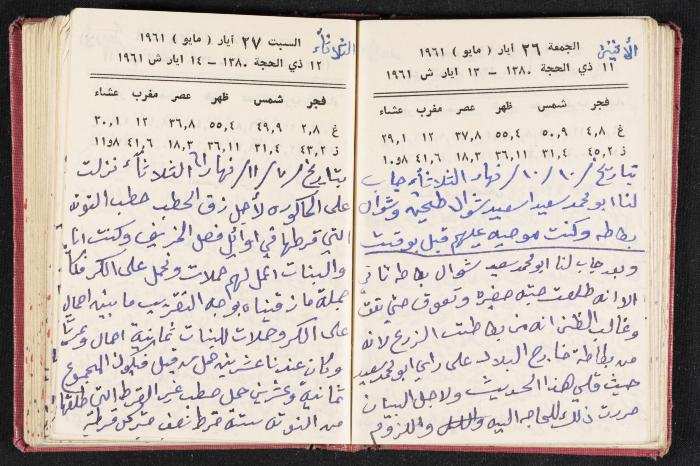 الأثنين
الجمعة ٢٦ أيار ( مايو ) ١٩٦١
١١ ذي الحجة ١٣٨٠ – ١٣ ايار ش ١٩٦١
فجر شمس ظهر عصر مغرب عشاء
غ ٤,٨ ٥٠,٩ ٥٥,٤ ٣٧,٨ ١٢ ٢٩,١
ز ٤٥,٢ ٣١,٤ ٣٦,١١ ١٨,٣ ٤١,٦ ١٠و٨
بتاريخ /١٠/١٠/ نهار الثلاثاء جاب
لنا ابو محمد سعيد اسعيد شوال طحين وشوال
بطاطه وكنت موصيه عليهم قبل بوقت
وبعد جاب لنا ابو محمد سعيد شوال بطاطه ثاني
الا انه طلعت حبته صغيره وتعوق حتى
وغالب الظن انه من بطاطت الزرع لانه
من بطاطة خارج البلاد على راي ابو محمد سعيد
حيث قلي هذا الحديث ولاجل البيان
حررت ذلك للحاجه اليه واللزوم
الثلاثاء
السبت ٢٧ أيار ( مايو ) ١٩٦١
١٢ ذي الحجة ١٣٨٠ – ١٤ ايار ش ١٩٦١
فجر شمس ظهر عصر مغرب عشاء
غ ٢,٨ ٤٩,٩ ٥٥,٤ ٣٦,٨ ١٢ ٣٠,١
ز ٤٣,٢ ٣١,٤ ٣٦,١١ ١٨,٣ ٤١,٦ ١١و٨
بتاريخ /٧/١١/ نهار الثلاثاء نزلت
على الحاكوره لأجل زق الحطب حطب التوته
التي قرطها في اوائل فصل الخريف وكنت انا
والبنات اعمل لهم حملات ونحمل على الكر
جملة ما زقيناه بوجه التقريب ما بين احمال
على الكر وحملات للبنات ثمانية احمال
وكان عندنا عشرين حمل من قبل المجموع
ثمانية وعشرين حمل حطب غير القرط التي
من التوته ستة قرط نصف متر كل قرطيه